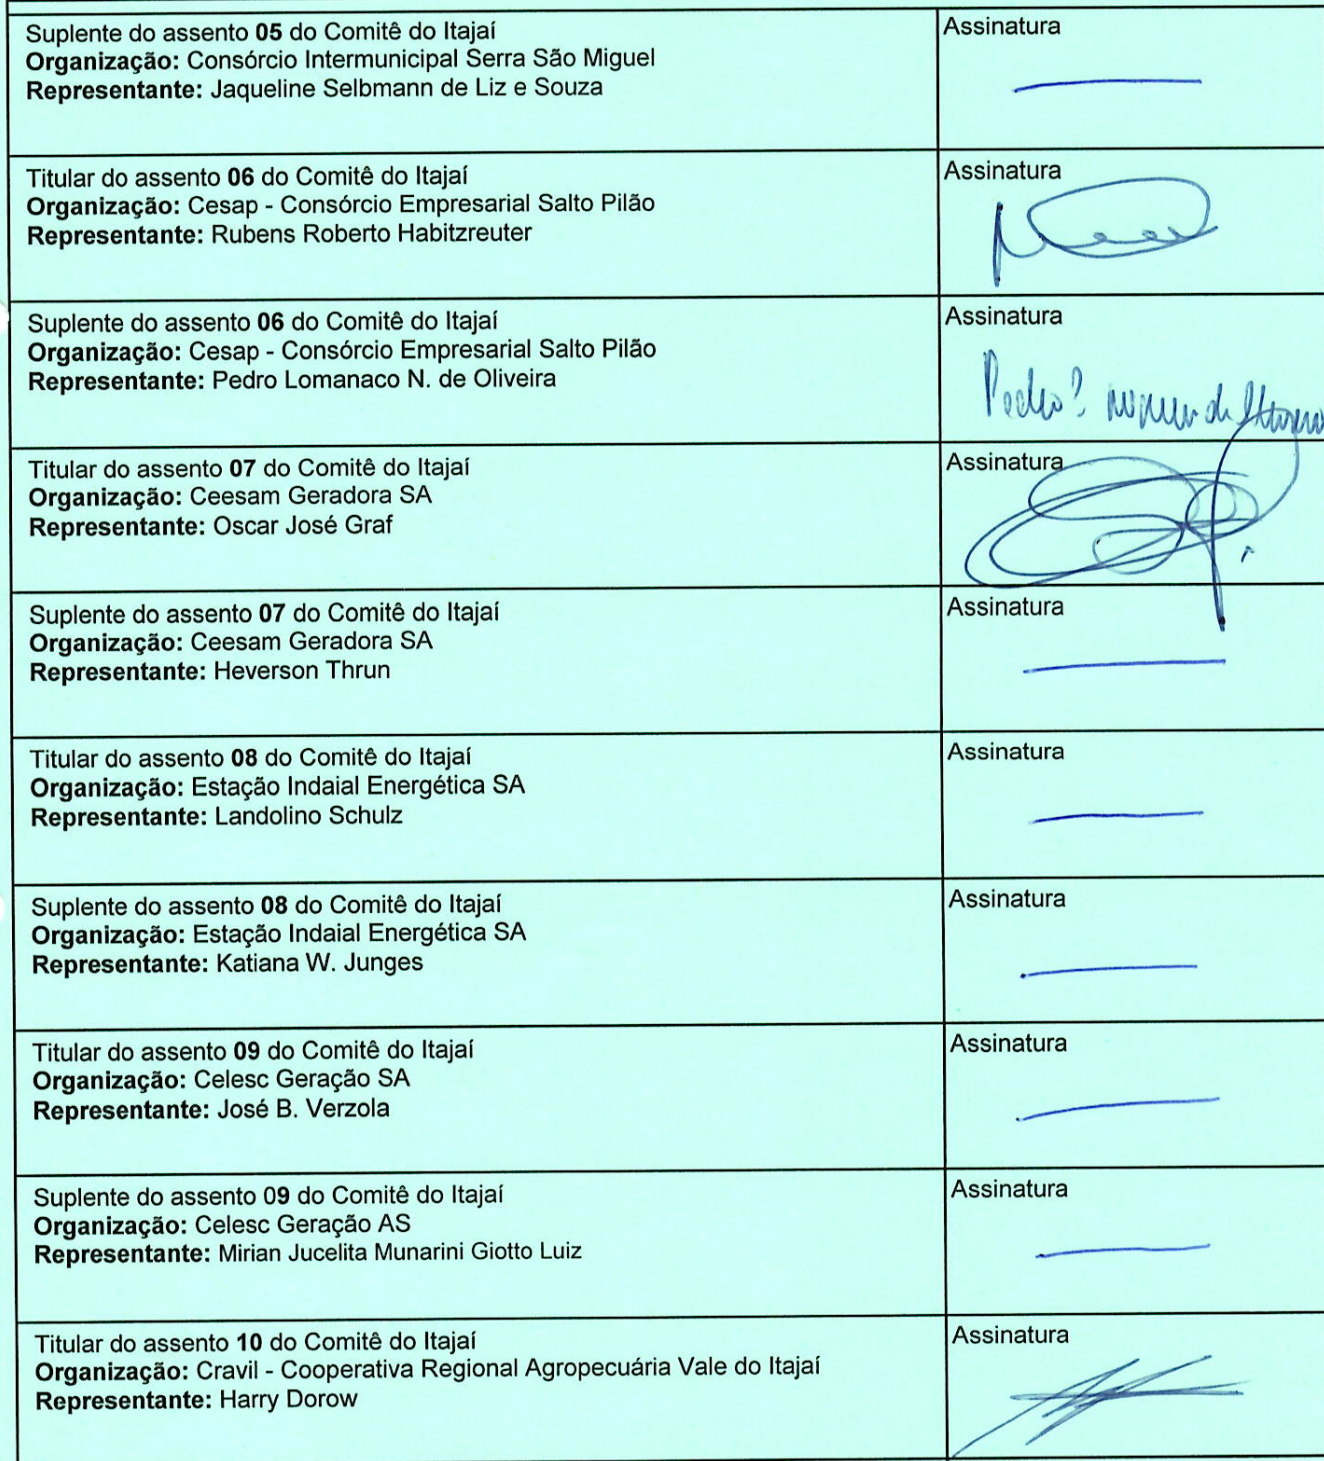 Suplente do assento 05 do Comitê do Itajaí
Organização: Consórcio Intermunicipal Serra São Miguel
Representante: Jaqueline Selbmann de Liz e Souza
Assinatura
Titular do assento 06 do Comitê do Itajaí
Organização: Cesap - Consórcio Empresarial Salto Pilão
Representante: Rubens Roberto Habitzreuter
Assinatura
Suplente do assento 06 do Comitê do Itajaí
Organização: Cesap - Consórcio Empresarial Salto Pilão
Representante: Pedro Lomanaco N. de Oliveira
Assinatura
Pedro
Titular do assento 07 do Comitê do Itajaí
Organização: Ceesam Geradora SA
Representante: Oscar José Graf
Assinatura
Suplente do assento 07 do Comitê do Itajaí
Organização: Ceesam Geradora SA
Representante: Heverson Thrun
Assinatura
Titular do assento 08 do Comitê do Itajaí
Organização: Estação Indaial Energética SA
Representante: Landolino Schulz
Assinatura
Suplente do assento 08 do Comitê do Itajaí
Organização: Estação Indaial Energética SA
Representante: Katiana W. Junges
Assinatura
Titular do assento 09 do Comitê do Itajaí
Organização: Celesc Geração SA
Representante: José B. Verzola
Assinatura
Suplente do assento 09 do Comitê do Itajaí
Organização: Celesc Geração AS
Representante: Mirian Jucelita Munarini Giotto Luiz
Assinatura
Titular do assento 10 do Comitê do Itajaí
Organização: Cravil - Cooperativa Regional Agropecuária Vale do Itajaí
Representante: Harry Dorow
Assinatura